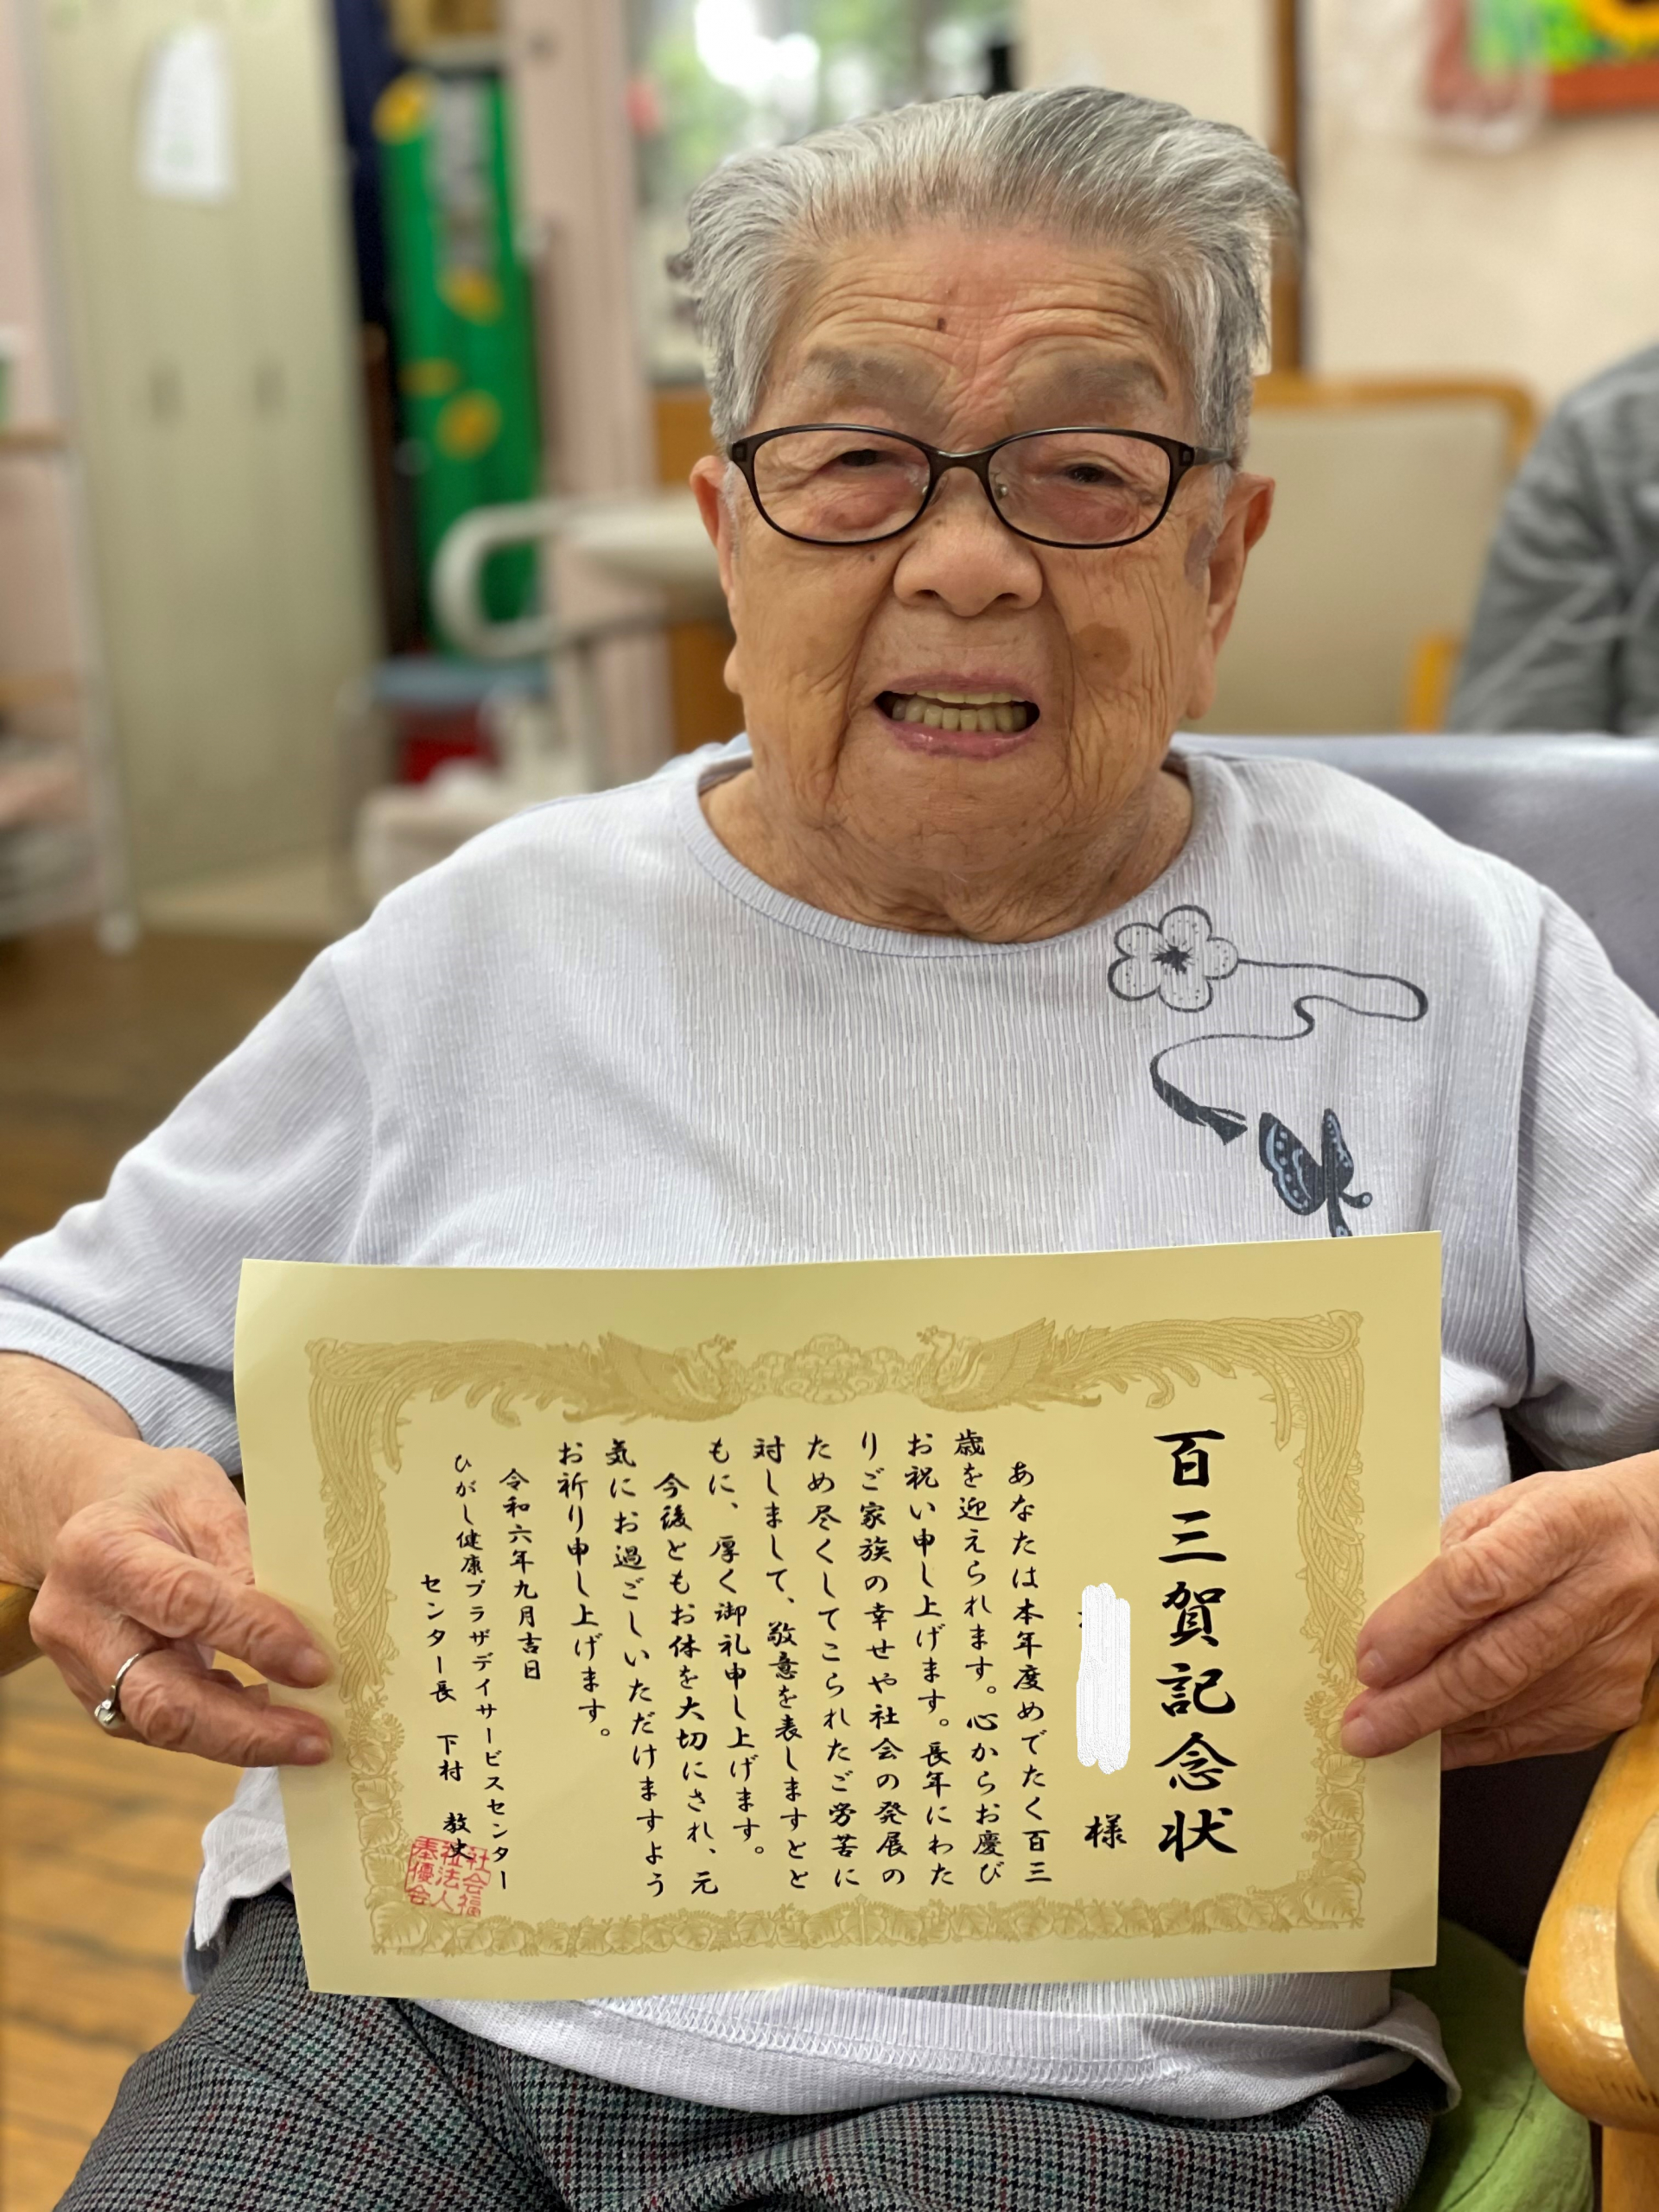 百三賀記念状
様
あなたは本年度めでたく百三
歳を迎えられます。心からお慶び
お祝い申し上げます。長年にわた
りご家族の幸せや社会の発展の
ため尽くしてこられたご労苦に
対しまして、敬意を表しますとと
もに、厚く御礼申し上げます。
今後ともお体を大切にされ、元
気にお過ごしいただけますよう
お祈り申し上げます。
令和六年九月吉日
ひがし健康プラザデイサービスセンター
センター長 下村 教史
社会福
祉法人
奉優会